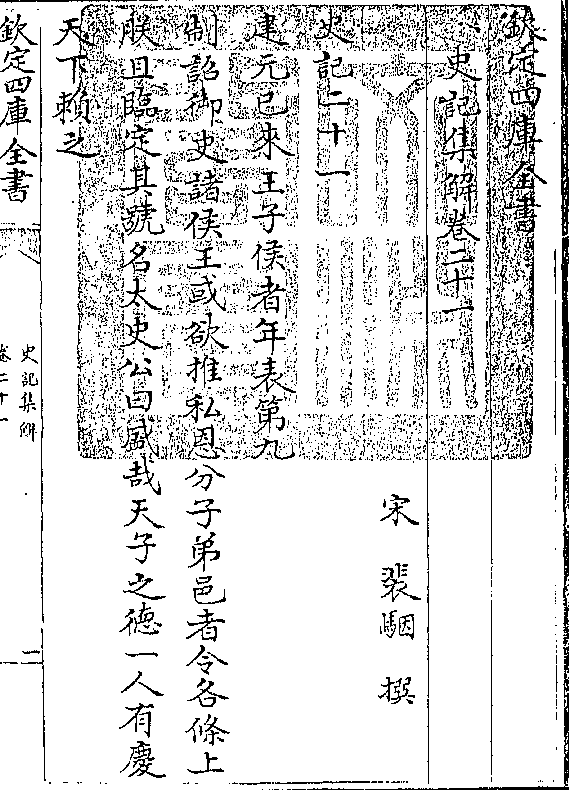 欽定四庫全書
史記集解卷二十一
宋 裴駰 撰
史記二十一
建元已來王子侯者年表第九
制詔御史諸侯王或欲推私恩分子弟邑者令各條上
朕且臨定其號名太史公曰盛哉天子之德一人有慶
天下賴之
欽定四庫全書
史記集解
卷二十一
一